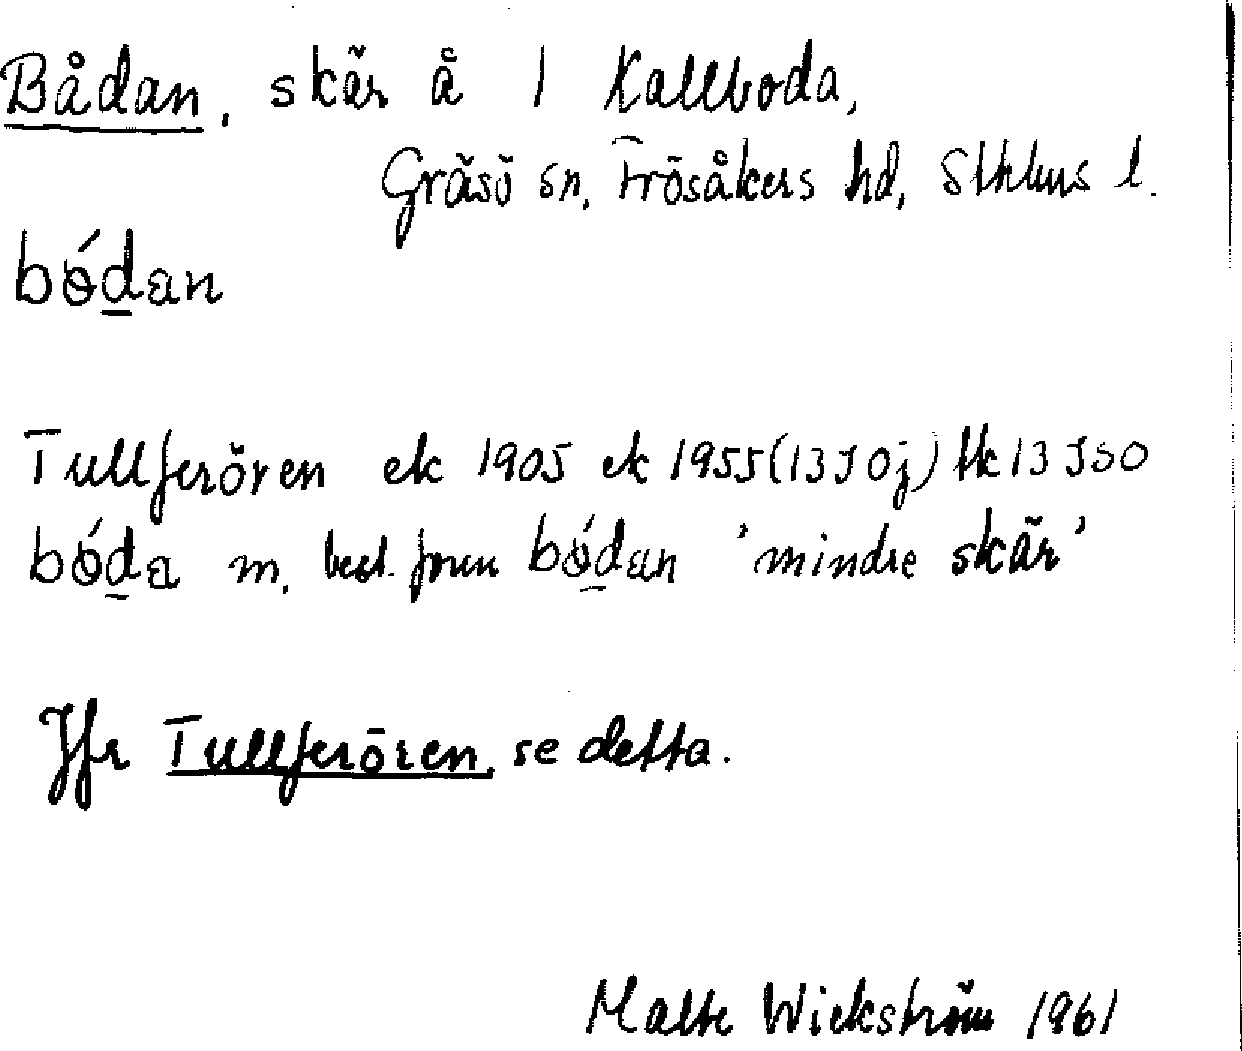 Bådan, skär å 1 Kallboda,
Gräsö sn, Frösåkers hd, Sthlms l.
bó̶dan
Tullferören ek 1905 ek 1955 (13J0j) Hk 13 JSO
bó̶da m. best. form bó̶dan 'mindre skär'
Jfr Tullferören, se detta.
Malte Wickström 1961